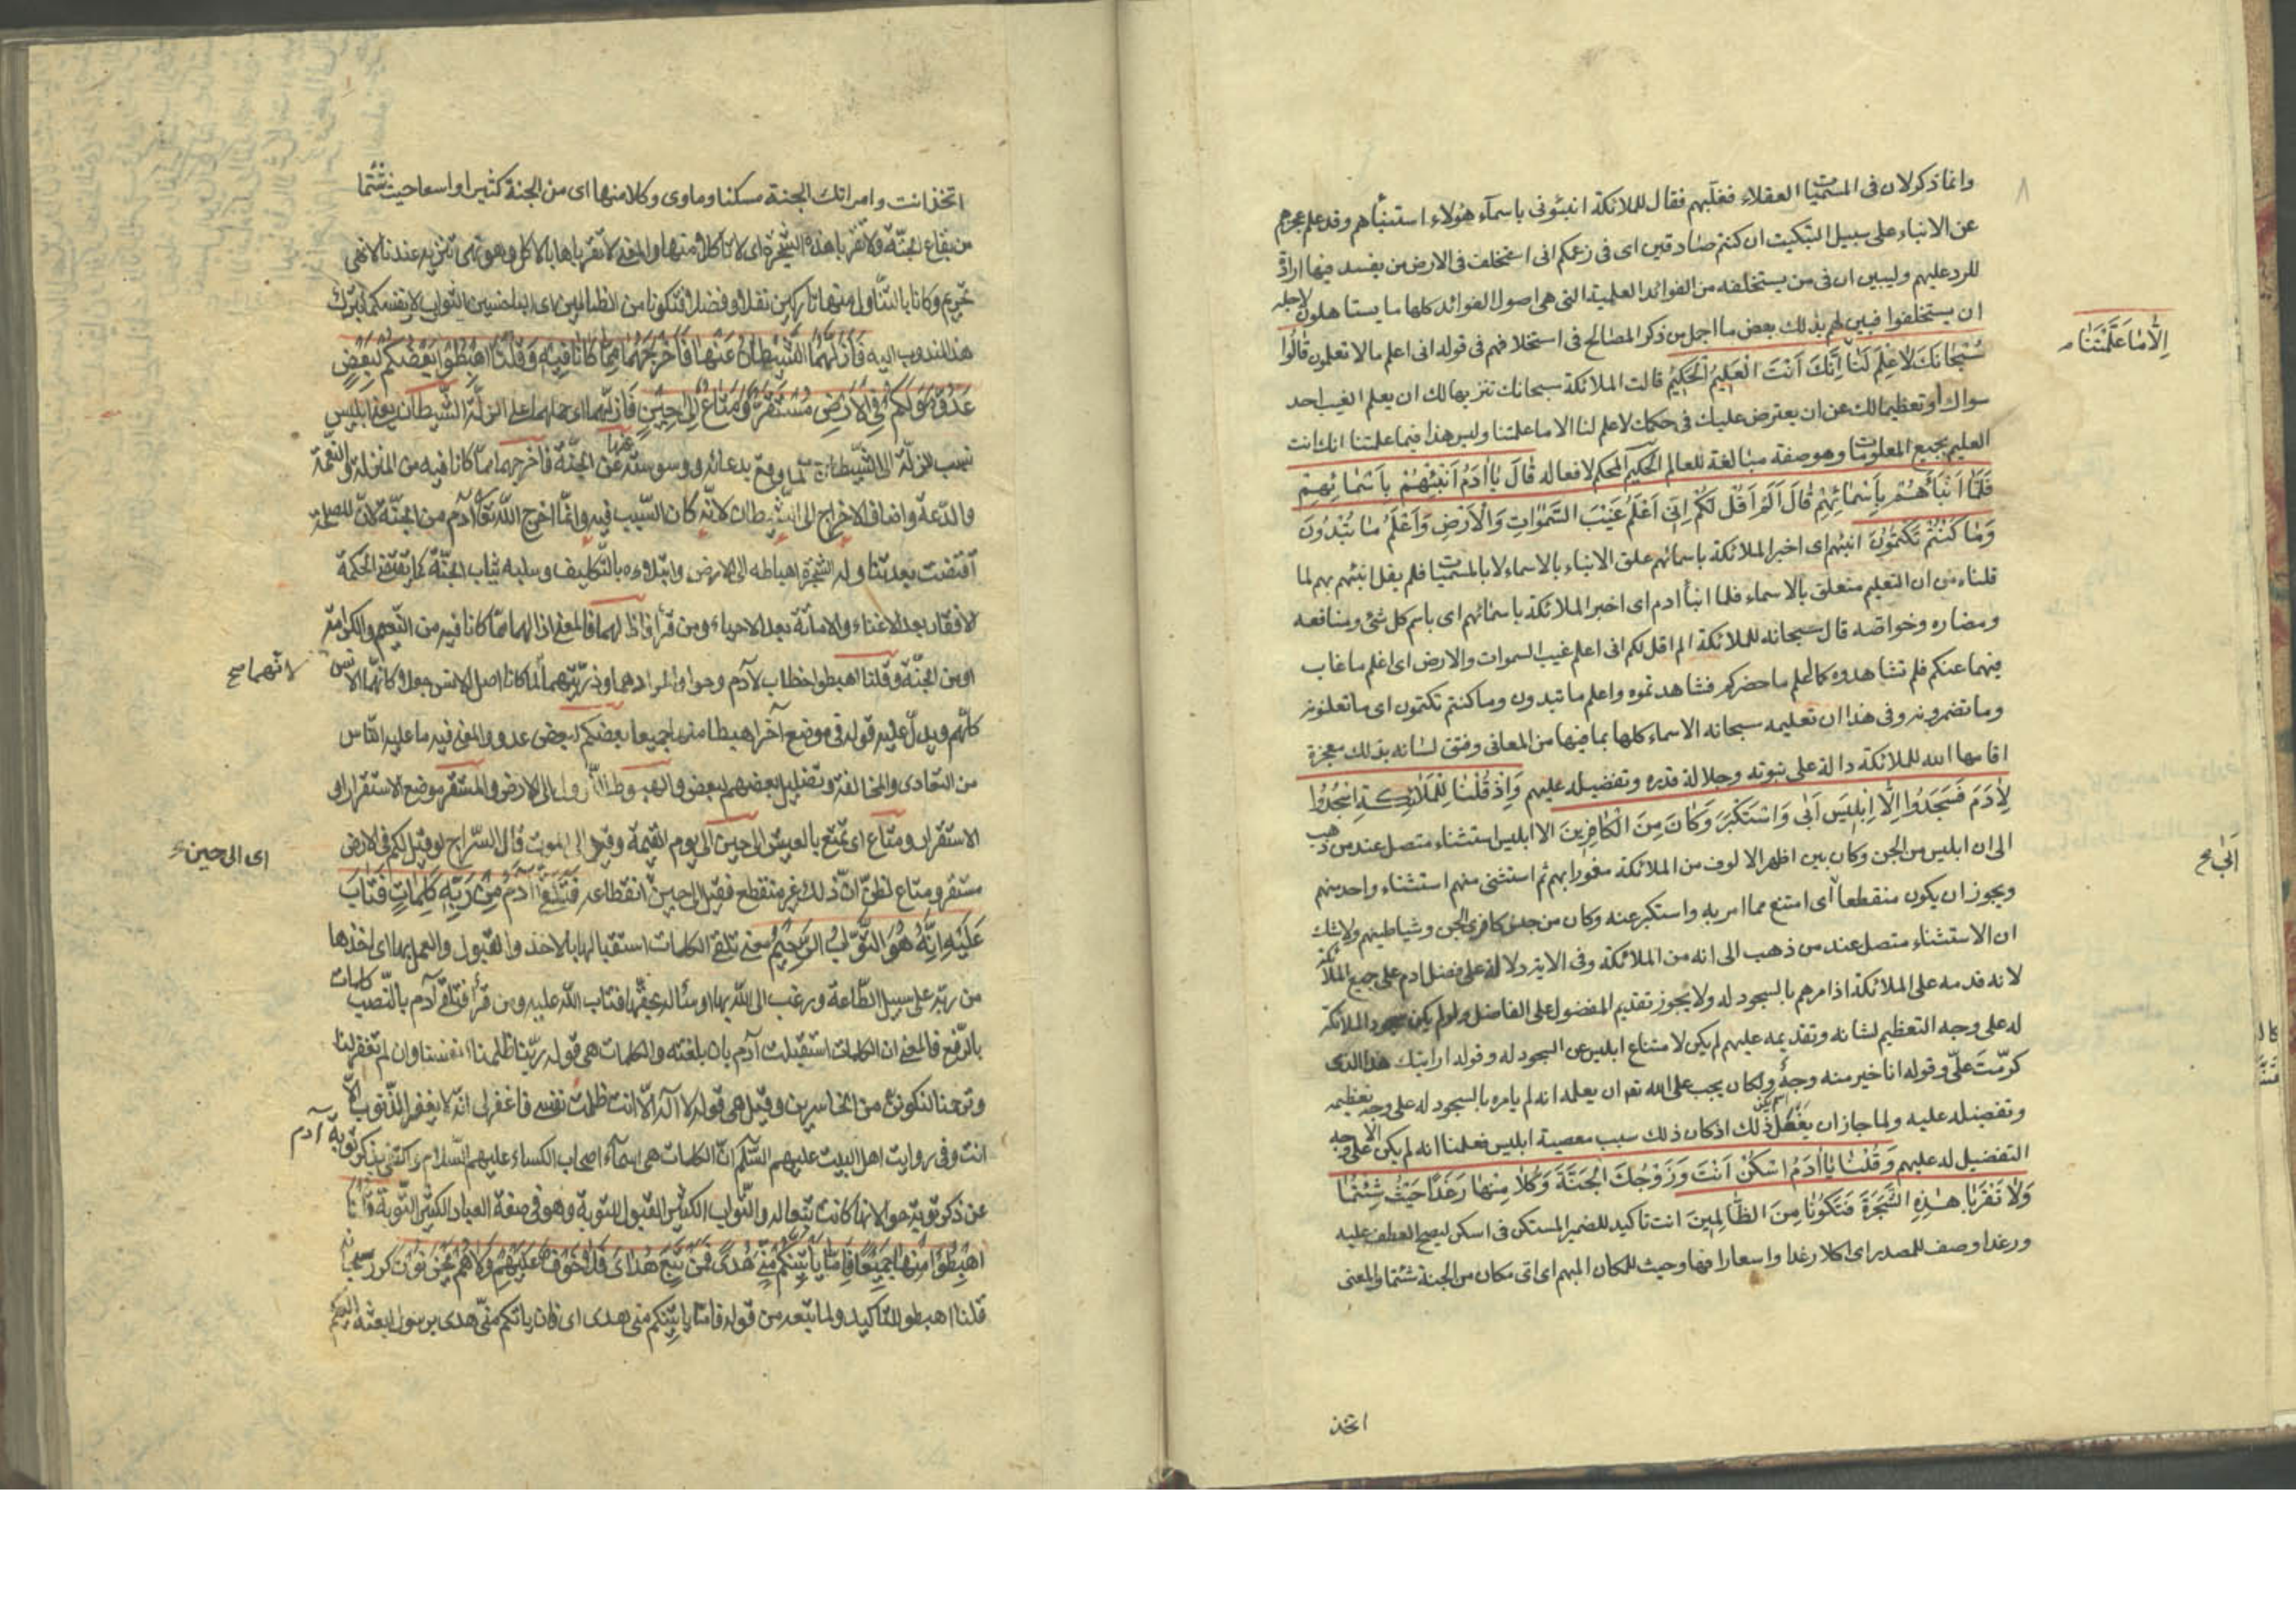 ٨
وانما ذكر لان فى المسميات العقلاء فغلبهم فقال للملائكة انبئونى باسمآء هؤلاء استنبأهم وقد علم عجزهم
عن الانباء على سبيل التبكيت ان كنتم صادقين اى فى زعمكم انى استخلف فى الارض من يفسد فيها ارادة
للرد عليهم وليبين ان فى من يستخلفه من الفوائد العلمية التى هى اصول الفوائد كلها ما يستاهلون لاجله
ان يستخلفوا فبين لهم بذلك بعض ما اجمل من ذكر المصالح فى استخلافهم فى قوله انى اعلم ما لا تعلمون قَالُوا
سُبْحَانَكَ لَا عِلْمَ لَنَا اِنَّكَ اَنْتَ الْعَلِيمُ الْحَكِيمُ قالت الملائكة سبحانك تنزيها لك ان يعلم الغيب احد
اِلَّا مَا عَلَّمْتَنَا
سواك وتعظيما لك عن ان يعترض عليك فى حكمك لا علم لنا الا ما علمتنا وليس هذا فيما علمتنا انك انت
العليم بجميع المعلومات وهو صفة مبالغة للعالم الحكيم المحكم لافعاله قَالَ يَا اٰدَمُ اَنْبِئْهُمْ بِاَسْمَائِهِمْ
فَلَمَّا اَنْبَأَهُمْ بِاَسْمَائِهِمْ قَالَ اَلَمْ اَقُلْ لَكُمْ اِنِّى اَعْلَمُ غَيْبَ السَّمٰوَاتِ وَالْاَرْضِ وَاَعْلَمُ مَا تُبْدُونَ
وَمَا كُنْتُمْ تَكْتُمُونَ انبئهم اى اخبر الملائكة باسمائهم علق الانباء بالاسماء لا بالمسميات فلم يقل انبئهم بهم لما
قلناه من ان التعليم متعلق بالاسماء فلما انبأ ادم اى اخبر الملائكة باسمائهم اى باسم كل شئ ومنافعه
ومضاره وخواصه قال سبحانه للملائكة الم اقل لكم انى اعلم غيب السموات والارض اى اعلم ما غاب
فيهما عنكم فلم تشاهدوه كما اعلم ما حضركم فشاهدتموه واعلم ما تبدون وما كنتم تكتمون اى ما تعلنونه
وما تضمرونه وفى هذا ان تعليمه سبحانه الاسماء كلها بما فيها من المعانى وفتق لسانه بذلك معجزة
اقامها الله للملائكة دالة على نبوته وجلالة قدره وتفضيله عليهم وَاِذْ قُلْنَا لِلْمَلَائِكَةِ اسْجُدُوا
لِاٰدَمَ فَسَجَدُوا اِلَّا اِبْلِيسَ اَبٰى وَاسْتَكْبَرَ وَكَانَ مِنَ الْكَافِرِينَ الا ابليس استثناء متصل عند من ذهب
الى ان ابليس من الجن وكان بين اظهر الالوف من الملائكة مغمورا بهم ثم استثنى منهم استثناء واحد منهم
ويجوز ان يكون منقطعا اى امتنع مما امر به واستكبر عنه وكان من جنس كافرى الجن وشياطينهم ولاشك
اَبٰى صح
ان الاستثناء متصل عند من ذهب الى انه من الملائكة وفى الاية دلالة على فضل ادم على جميع الملائكة
لانه قدمه على الملائكة اذ امرهم بالسجود له ولا يجوز تقديم المفضول على الفاضل ولو لم يكن سجود الملائكة
له على وجه التعظيم لشانه وتقديمه عليهم لم يكن لامتناع ابليس عن السجود له وقوله ارايتك هذا الذى
كرّمتَ علىّ وقوله انا خير منه وجهٌ ولكان يجب على الله تعالى ان يعلمه انه لم يامره بالسجود له على وجه تعظيمه
وتفضيله عليه ولما جاز ان يغفل ذلك اذ كان ذلك سبب معصية ابليس فعلمنا انه لم يكن الا على وجه
التفضيل له عليهم وَقُلْنَا يَا اٰدَمُ اسْكُنْ اَنْتَ وَزَوْجُكَ الْجَنَّةَ وَكُلَا مِنْهَا رَغَدًا حَيْثُ شِئْتُمَا
وَلَا تَقْرَبَا هٰذِهِ الشَّجَرَةَ فَتَكُونَا مِنَ الظَّالِمِينَ انت تاكيد للضمير المستكن فى اسكن ليصح العطف عليه
ورغدا وصف للمصدر اى اكلا رغدا واسعا رافها وحيث للمكان المبهم اى اىّ مكان من الجنة شئتما والمعنى
اتخذ
اتخذ انت وامراتك الجنة مسكنا وماوى وكلا منها اى من الجنة كثيرا واسعا حيث شئتما
من بقاع الجنّة ولا تقربا هذه الشجرة اى لا تاكلا منها والمعنى لا تقرباها بالاكل وهو نهى تنزيه عندنا لا نهى
تحريم وكانا بالتناول منها تاركين نفلا وفضلا فتكونا من الظالمين اى الباخسين الثواب لانفسكما بترك
هذا المندوب اليه فَاَزَلَّهُمَا الشَّيْطَانُ عَنْهَا فَاَخْرَجَهُمَا مِمَّا كَانَا فِيهِ وَقُلْنَا اهْبِطُوا بَعْضُكُمْ لِبَعْضٍ
عَدُوٌّ وَلَكُمْ فِى الْاَرْضِ مُسْتَقَرٌّ وَمَتَاعٌ اِلٰى حِينٍ فازلّهما اى حملهما على الزلّة الشيطان يعنى ابليس
نسب الزلّة الى الشيطان لما وقع بدعائه ووسوسته عنها عن الجنّة فاخرجهما ممّا كانا فيه من المنزلة والنعمة
والدّعة واضاف الاخراج الى الشيطان لانّه كان السّبب فيه وانّما اخرج اللّه تعالى آدم من الجنّة لانّ المصلحة
اقتضت بعد تناوله الشجرة اهباطه الى الارض وابتلاؤه بالتّكليف وسلبه ثياب الجنّة كما يقتضى الحكمة
الافقار بعد الاغناء والاماتة بعد الاحياء ومن قرأ فازالهما فالمعنى ازالهما ممّا كانا فيه من النّعيم والكرامة
او من الجنّة وقلنا اهبطوا خطاب لآدم وحوا والمراد هما وذرّيتهما لانهما لما كانا اصل الانس جعلا كانّهما الانس
لانهما صح
كلّهم ويدلّ عليه قوله فى موضع آخر اهبطا منها جميعا بعضكم لبعض عدو والمعنى فيه ما عليه النّاس
من التّعادى والمخالفة وتضليل بعضهم لبعض والهبوط النّزول الى الارض والمستقر موضع الاستقرار او
الاستقرار ومتاع اى تمتّع بالعيش الى حين الى يوم القيمة وقيل الى الموت قال السّراج لو قيل لكم فى الارض
اى الى حين
مستقر ومتاع لظنّ انّ ذلك غير منقطع فقيل الى حين انقطاعه فَتَلَقّٰى اٰدَمُ مِنْ رَبِّهِ كَلِمَاتٍ فَتَابَ
عَلَيْهِ اِنَّهُ هُوَ التَّوَّابُ الرَّحِيمُ معنى تلقّى الكلمات استقبالها بالاخذ والقبول والعمل بها اى اخذها
من ربّه على سبيل الطّاعة ورغب الى اللّه بها او سأله بحقّها فتاب اللّه عليه ومن قرأ فتلقّى آدم بالنّصب كلمات
بالرّفع فالمعنى ان الكلمات استقبلت آدم بان بلغته والكلمات هى قوله ربّنا ظلمنا انفسنا وان لم تغفر لنا
وترحمنا لنكوننّ من الخاسرين وقيل هى قوله لا اله الّا انت ظلمت نفسى فاغفر لى انّه لا يغفر الذّنوب الّا
انت وفى روايت اهل البيت عليهم السّلام انّ الكلمات هى اسمآء اصحاب الكساء عليهم السّلام واكتفى بذكر توبة آدم
عن ذكر توبة حوا لانها كانت تبعا له والتّواب الكثير القبول للتوبة وهو فى صفة العباد الكثير التّوبة قُلْنَا
اهْبِطُوا مِنْهَا جَمِيعًا فَاِمَّا يَأْتِيَنَّكُمْ مِنِّى هُدًى فَمَنْ تَبِعَ هُدَاىَ فَلَا خَوْفٌ عَلَيْهِمْ وَلَا هُمْ يَحْزَنُونَ كرر سبحانه
قلنا اهبطوا للتاكيد ولما تبعه من قوله فامّا ياتينّكم منى هدى اى فان ياتكم منّى هدى برسول ابعثه اليكم